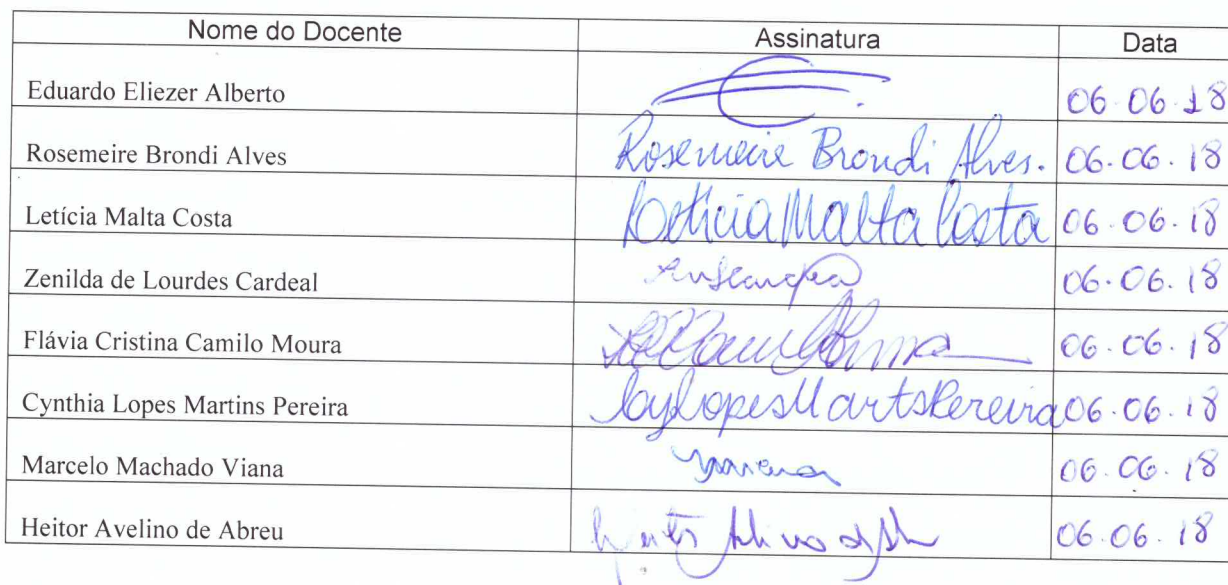 Nome do Docente Assinatura Data
Eduardo Eliezer Alberto 06.06.18
Rosemeire Brondi Alves Rosemeire Brondi Alves. 06.06.18
Letícia Malta Costa Letícia Malta Costa 06.06.18
Zenilda de Lourdes Cardeal 06.06.18
Flávia Cristina Camilo Moura 06.06.18
Cynthia Lopes Martins Pereira CyLopesMartsPereira 06.06.18
Marcelo Machado Viana 06.06.18
Heitor Avelino de Abreu 06.06.18